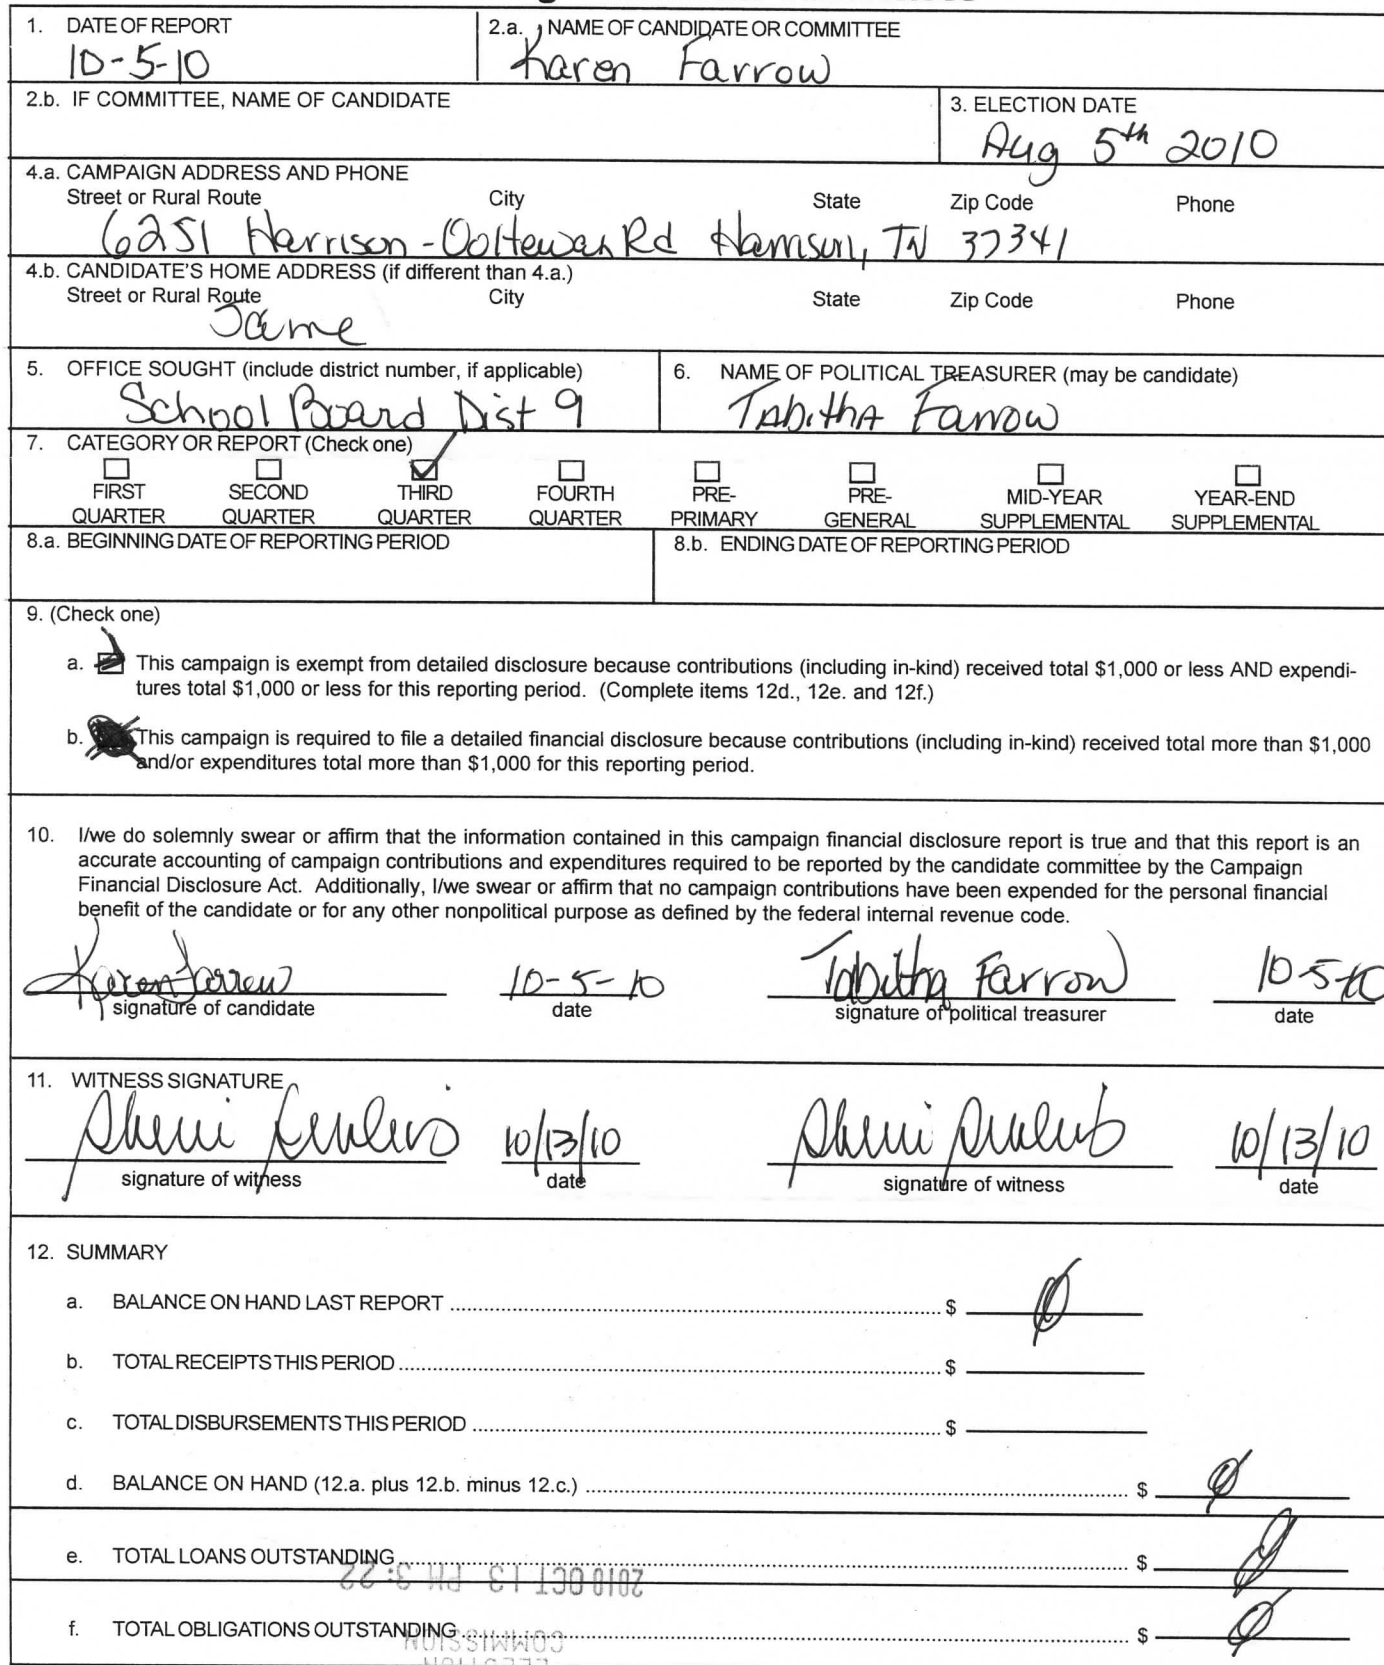 1. DATE OF REPORT
10-5-10
2.a. NAME OF CANDIDATE OR COMMITTEE
Karen Farrow
2.b. IF COMMITTEE, NAME OF CANDIDATE
3. ELECTION DATE
Aug 5th 2010
4.a. CAMPAIGN ADDRESS AND PHONE
Street or Rural Route City State Zip Code Phone
6251 Harrison-Ooltewah Rd Harrison, TN 37341
4.b. CANDIDATE'S HOME ADDRESS (if different than 4.a.)
Street or Rural Route City State Zip Code Phone
Same
5. OFFICE SOUGHT (include district number, if applicable)
School Board Dist 9
6. NAME OF POLITICAL TREASURER (may be candidate)
Tabitha Farrow
7. CATEGORY OR REPORT (Check one)
FIRST QUARTER
SECOND QUARTER
THIRD QUARTER
FOURTH QUARTER
PRE-PRIMARY
PRE-GENERAL
MID-YEAR SUPPLEMENTAL
YEAR-END SUPPLEMENTAL
8.a. BEGINNING DATE OF REPORTING PERIOD
8.b. ENDING DATE OF REPORTING PERIOD
9. (Check one)
a. This campaign is exempt from detailed disclosure because contributions (including in-kind) received total $1,000 or less AND expendi-
tures total $1,000 or less for this reporting period. (Complete items 12d., 12e. and 12f.)
b. This campaign is required to file a detailed financial disclosure because contributions (including in-kind) received total more than $1,000
and/or expenditures total more than $1,000 for this reporting period.
10. I/we do solemnly swear or affirm that the information contained in this campaign financial disclosure report is true and that this report is an
accurate accounting of campaign contributions and expenditures required to be reported by the candidate committee by the Campaign
Financial Disclosure Act. Additionally, I/we swear or affirm that no campaign contributions have been expended for the personal financial
benefit of the candidate or for any other nonpolitical purpose as defined by the federal internal revenue code.
Karen Farrow 10-5-10 Tabitha Farrow 10-5-10
signature of candidate date signature of political treasurer date
11. WITNESS SIGNATURE
10/13/10 10/13/10
signature of witness date signature of witness date
12. SUMMARY
a. BALANCE ON HAND LAST REPORT $ 0
b. TOTAL RECEIPTS THIS PERIOD $
c. TOTAL DISBURSEMENTS THIS PERIOD $
d. BALANCE ON HAND (12.a. plus 12.b. minus 12.c.) $ 0
e. TOTAL LOANS OUTSTANDING $ 0
2010 OCT 13 PM 3:22
f. TOTAL OBLIGATIONS OUTSTANDING $ 0
COMMISSION
ELECTION